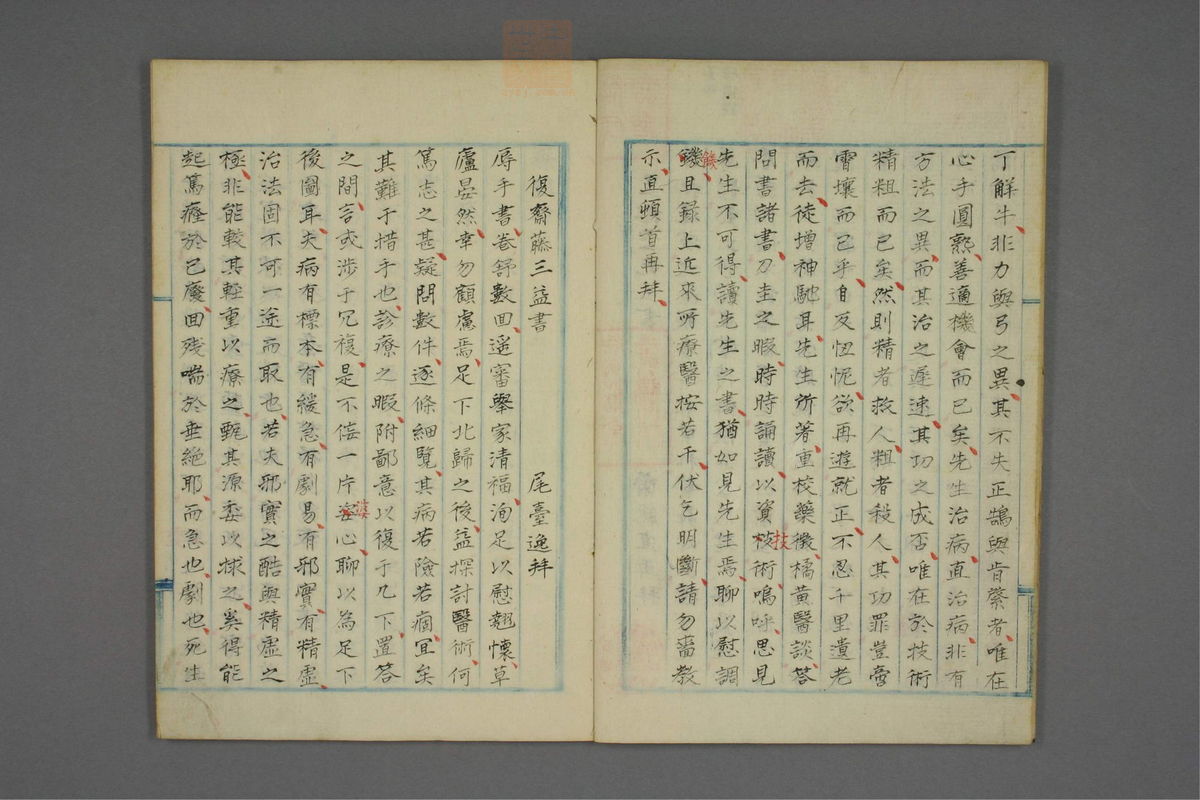 丁解牛非力與弓之異其不失正鵠與肯綮者唯在
心手圓熟善適機會而已矣先生治病直治病非有
方法之異而其治之遲速其功之成否唯在於技術
精粗而已矣然則精者救人粗者殺人其功罪豈啻
霄壤而已乎自反忸怩欲再遊就正不忍千里遺老
而去徒增神馳耳先生所著重校藥徵橘黃醫談答
問書諸書刀圭之暇時時誦讀以資技術嗚呼思見
先生不可得讀先生之書猶如見先生焉聊以慰調
饑且錄上近來所療醫按若干伏乞明斷請勿嗇教
示直頓首再拜
復齋藤三益書　尾臺逸拜
辱手書卷舒數回遥審擧家清福洵足以慰翹懷草
廬晏然幸勿顧慮焉足下北歸之後益探討醫術何
篤志之甚疑問數件逐條細覽其病若險若痼宜矣
其難于措手也診療之暇附鄙意以復于几下置答
之間言或涉于冗複是不偣一片婆心聊以為足下
後圖耳夫病有標本有緩急有劇易有邪實有精虛
治法固不可一途而取也若夫邪實之酷與精虛之
極非能較其輕重以療之甄其源委以捄之奚得能
起篤癃於已廢回残喘於垂絕耶而急也劇也死生